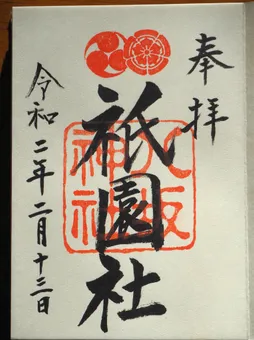 奉拝
八坂
神社
祇園社
令和二年二月十三日